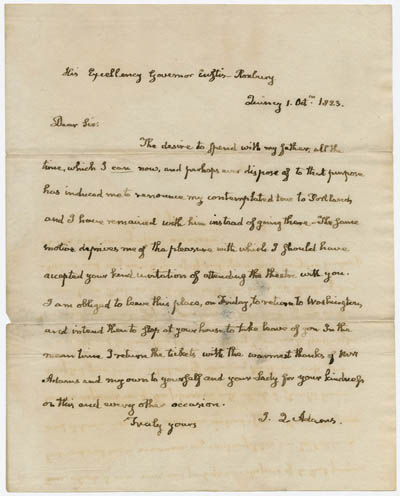 His Excellency Governor Eustis – Roxbury
Quincy 1. Octr. 1823.
Dear Sir:
The desire to spend with my father, all the
time, which I can now, and perhaps ever dispose of to that purpose
has induced me to renounce my contemplated tour to Portland,
and I have remained with him instead of going there – The same
motive deprives me of the pleasure with which I should have
accepted your kind invitation of attending the theatre with you.
I am obliged to leave this place, on Friday, to return to Washington,
and intend then to stop at your house to take leave of you. In the
mean time I return the tickets with the warmest thanks of Mrs
Adams and my own to yourself and your Lady for your kindness
on this and every other occasion.
Truly yours
J. Q. Adams.